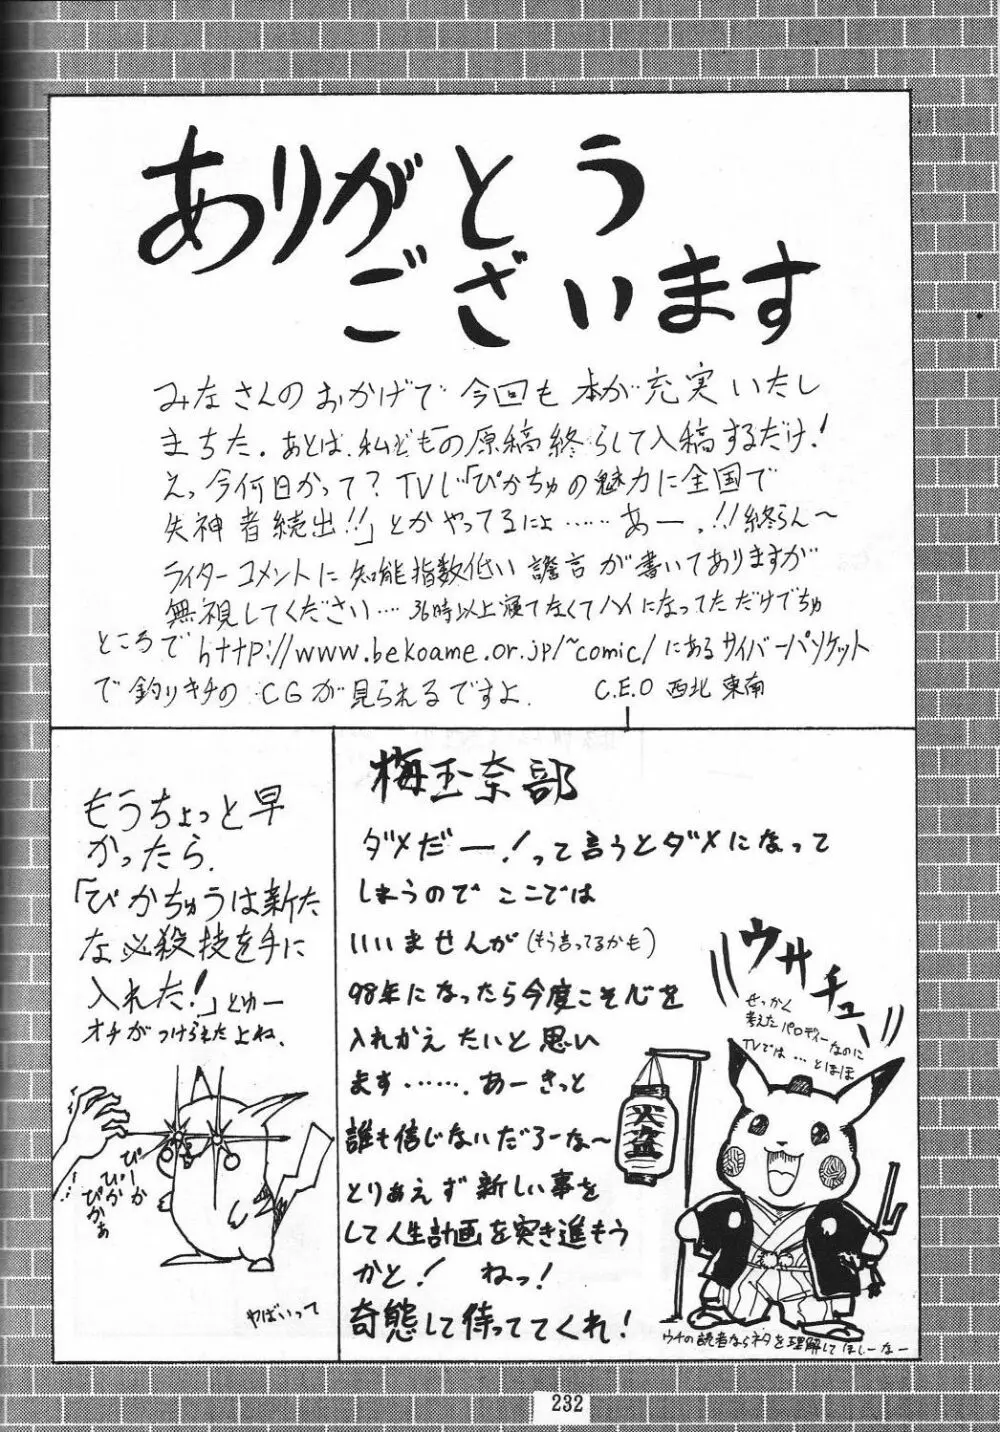 ありがとう
ございます
みなさんのおかげで今回も本が充実いたし
まちた。あとは、私どもの原稿終らして入稿するだけ!
えっ、今何日かって？TVじ「ぴかちゅの魅力に全国で
失神者続出!!」とかやってるによ……あー、!!終らん～
ライターコメントに知能指数低い譫言が書いてありますが
無視してください…36時以上寝てなくてハイになってただけでちゅ
ところでhttp://www.bekoame.or.jp/~comic/にあるサイバーパソケット
で釣りキチのCGが見られるですよ.
C.E.O 西北 東南
もうちょっと早
かったら、
「ぴかちゅうは新た
な必殺技を手に
入れた!」とゆー
オチがつけられたよね、
ぴーか
ぴか
ぴかぁ
やばいって
梅玉奈部
ダメだー!って言うとダメになって
しまうので ここでは
いいませんが(もう言ってるかも)
98年になったら今度こそ心を
入れかえ たいと 思い
ます……. あーきっと
誰も信じないだろーな～
とりあえず 新しい事を
して人生計画を突き進もう
かと! ねっ!
奇態して待っててくれ!
ウサチュー
せっかく
考えたパロディーなのに
TVでは…とほほ
火盗
ウチの読者ならネタを理解してほしーなー
232